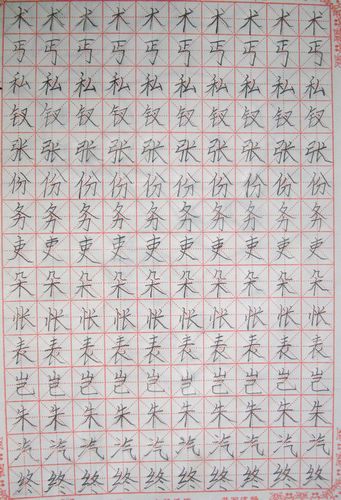 术术术术术术术术术术
丐丐丐丐丐丐丐丐丐丐
私私私私私私私私私私
钗钗钗钗钗钗钗钗钗钗
张张张张张张张张张张
份份份份份份份份份份
务务务务务务务务务务
吏吏吏吏吏吏吏吏吏吏
朵朵朵朵朵朵朵朵朵朵
怅怅怅怅怅怅怅怅怅怅
表表表表表表表表表表
岂岂岂岂岂岂岂岂岂岂
朱朱朱朱朱朱朱朱朱朱
汽汽汽汽汽汽汽汽汽汽
终终终终终终终终终终